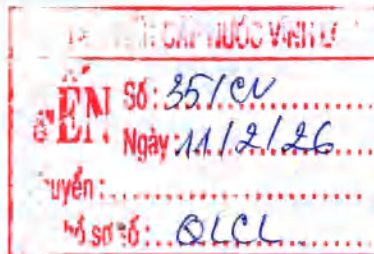 CẤP NƯỚC VĨNH
ĐẾN Số: 35/CV
Ngày: 11/2/26
Chuyển:
hồ sơ số: QLCL